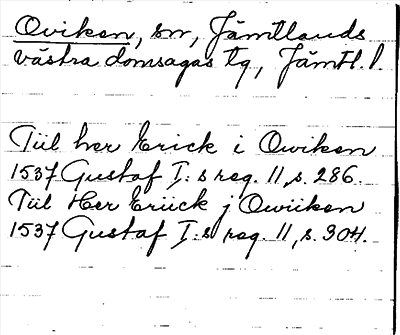 Oviken, sn, Jämtlands
västra domsagas tg, Jämtl. l.
Tiil her Erick i Owiken
1537 Gustaf I:s reg. 11, s. 286.
Tiil Her Eriick j Owiiken
1537 Gustaf I:s reg. 11, s. 304.